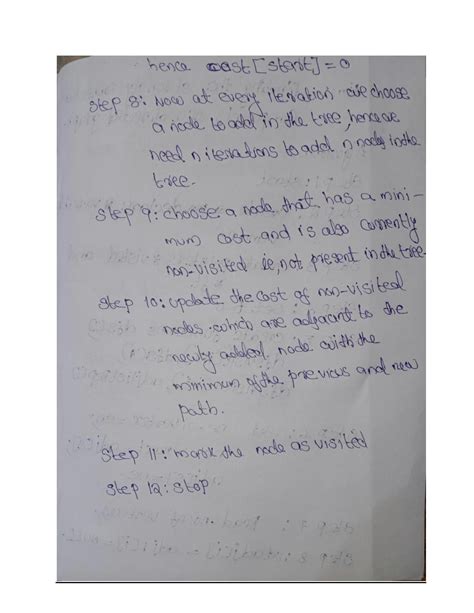 hence cost[start]=0
Step 8: Now at every iteration we choose
a node to add in the tree, hence we
need n iterations to add n nodes in the
tree.
Step 9: choose a node that has a mini-
mum cost and is also currently
non-visited ie, not present in the tree.
Step 10: update the cost of non-visited
nodes which are adjacent to the
newly added node with the
minimum of the previous and new
path.
Step 11: mark the node as visited
Step 12: stop